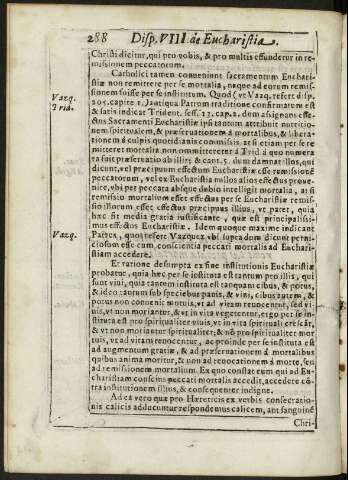 288 Disp. VIII. de Eucharistia.
Christi dicitur, qui pro vobis, & pro multis effundetur in re-
missionem peccatorum.
Catholici tamen conveniunt sacramentum Euchari-
stiæ non remittere per se mortalia, neque ad eorum remis-
sionem fuisse per se institutum. Quod (vt Vazq. refert disp.
Vazq.
205. capite 1. ) antiqua Patrum traditione confirmatum est
Trid.
& satis indicat Trident. sess. 13. cap. 2. dem assignans effe-
ctus Sacramenti Eucharistiæ ipsi tantum attribuit nutritio-
nem spiritualem, & præservationem á mortalibus, & libera-
tionem á culpis quotidianis commissis, at si etiam per se re-
mitteret mortalia non committerent á Trid. á quo numera
ta fuit præservatio ab illis; & can. 5. dum damnat illos, qui
dicunt, vel præcipuum effectum Eucharistiæ esse remissionē
peccatorum, vel ex Eucharistia nullos alios effectus prove-
nire, vbi per peccata absque dubio intelligit mortalia, at si
remissio mortalium esset effectus per se Eucharistiæ remis-
sio illorum esset effectus præcipuus illius, vt patet, quia
hæc fit media gratia iustificante, quæ est principalissi-
mus effectus Eucharistiæ. Idem quoque maxime indicant
Vazq.
Patres, quos refert Vazquez vbi supra dum dicunt perni-
ciosum esse cum conscientia peccati mortalis ad Euchari-
stiam accedere.
Et ratione desumpta ex fine institutionis Eucharistiæ
probatur, quia hæc per se instituta est tantum pro illis, qui
sunt vivi, quia tantum instituta est tanquam cibus, & potus,
& ideo datur sub speciebus panis, & vini, cibus autem, &
potus non convenit mortuis, vt ad vitam revocentur, sed vi-
vis, vt non moriantur, & vt in vita vegetentur, ergo per se in-
stituta est pro spiritualiter vivis, vt in vita spirituali crescāt,
& vt non moriantur spiritualiter, & nō pro spiritualiter mor-
tuis, vt ad vitam revocentur, ac proinde per se instituta est
ad augmentum gratiæ, & ad præservationem á mortalibus
quibus anima moritur, & non ad revocationem á morte, seu
ad remissionem mortalium. Ex quo constat eum qui ad Eu-
charistiam conscius peccati mortalis accedit, accedere cō-
tra institutionem illius, & consequenter indigne.
Ad ea vero quæ pro Hæreticis ex verbis consecratio-
nis calicis adducuntur respondemus calicem, aut sanguinē
Chri-